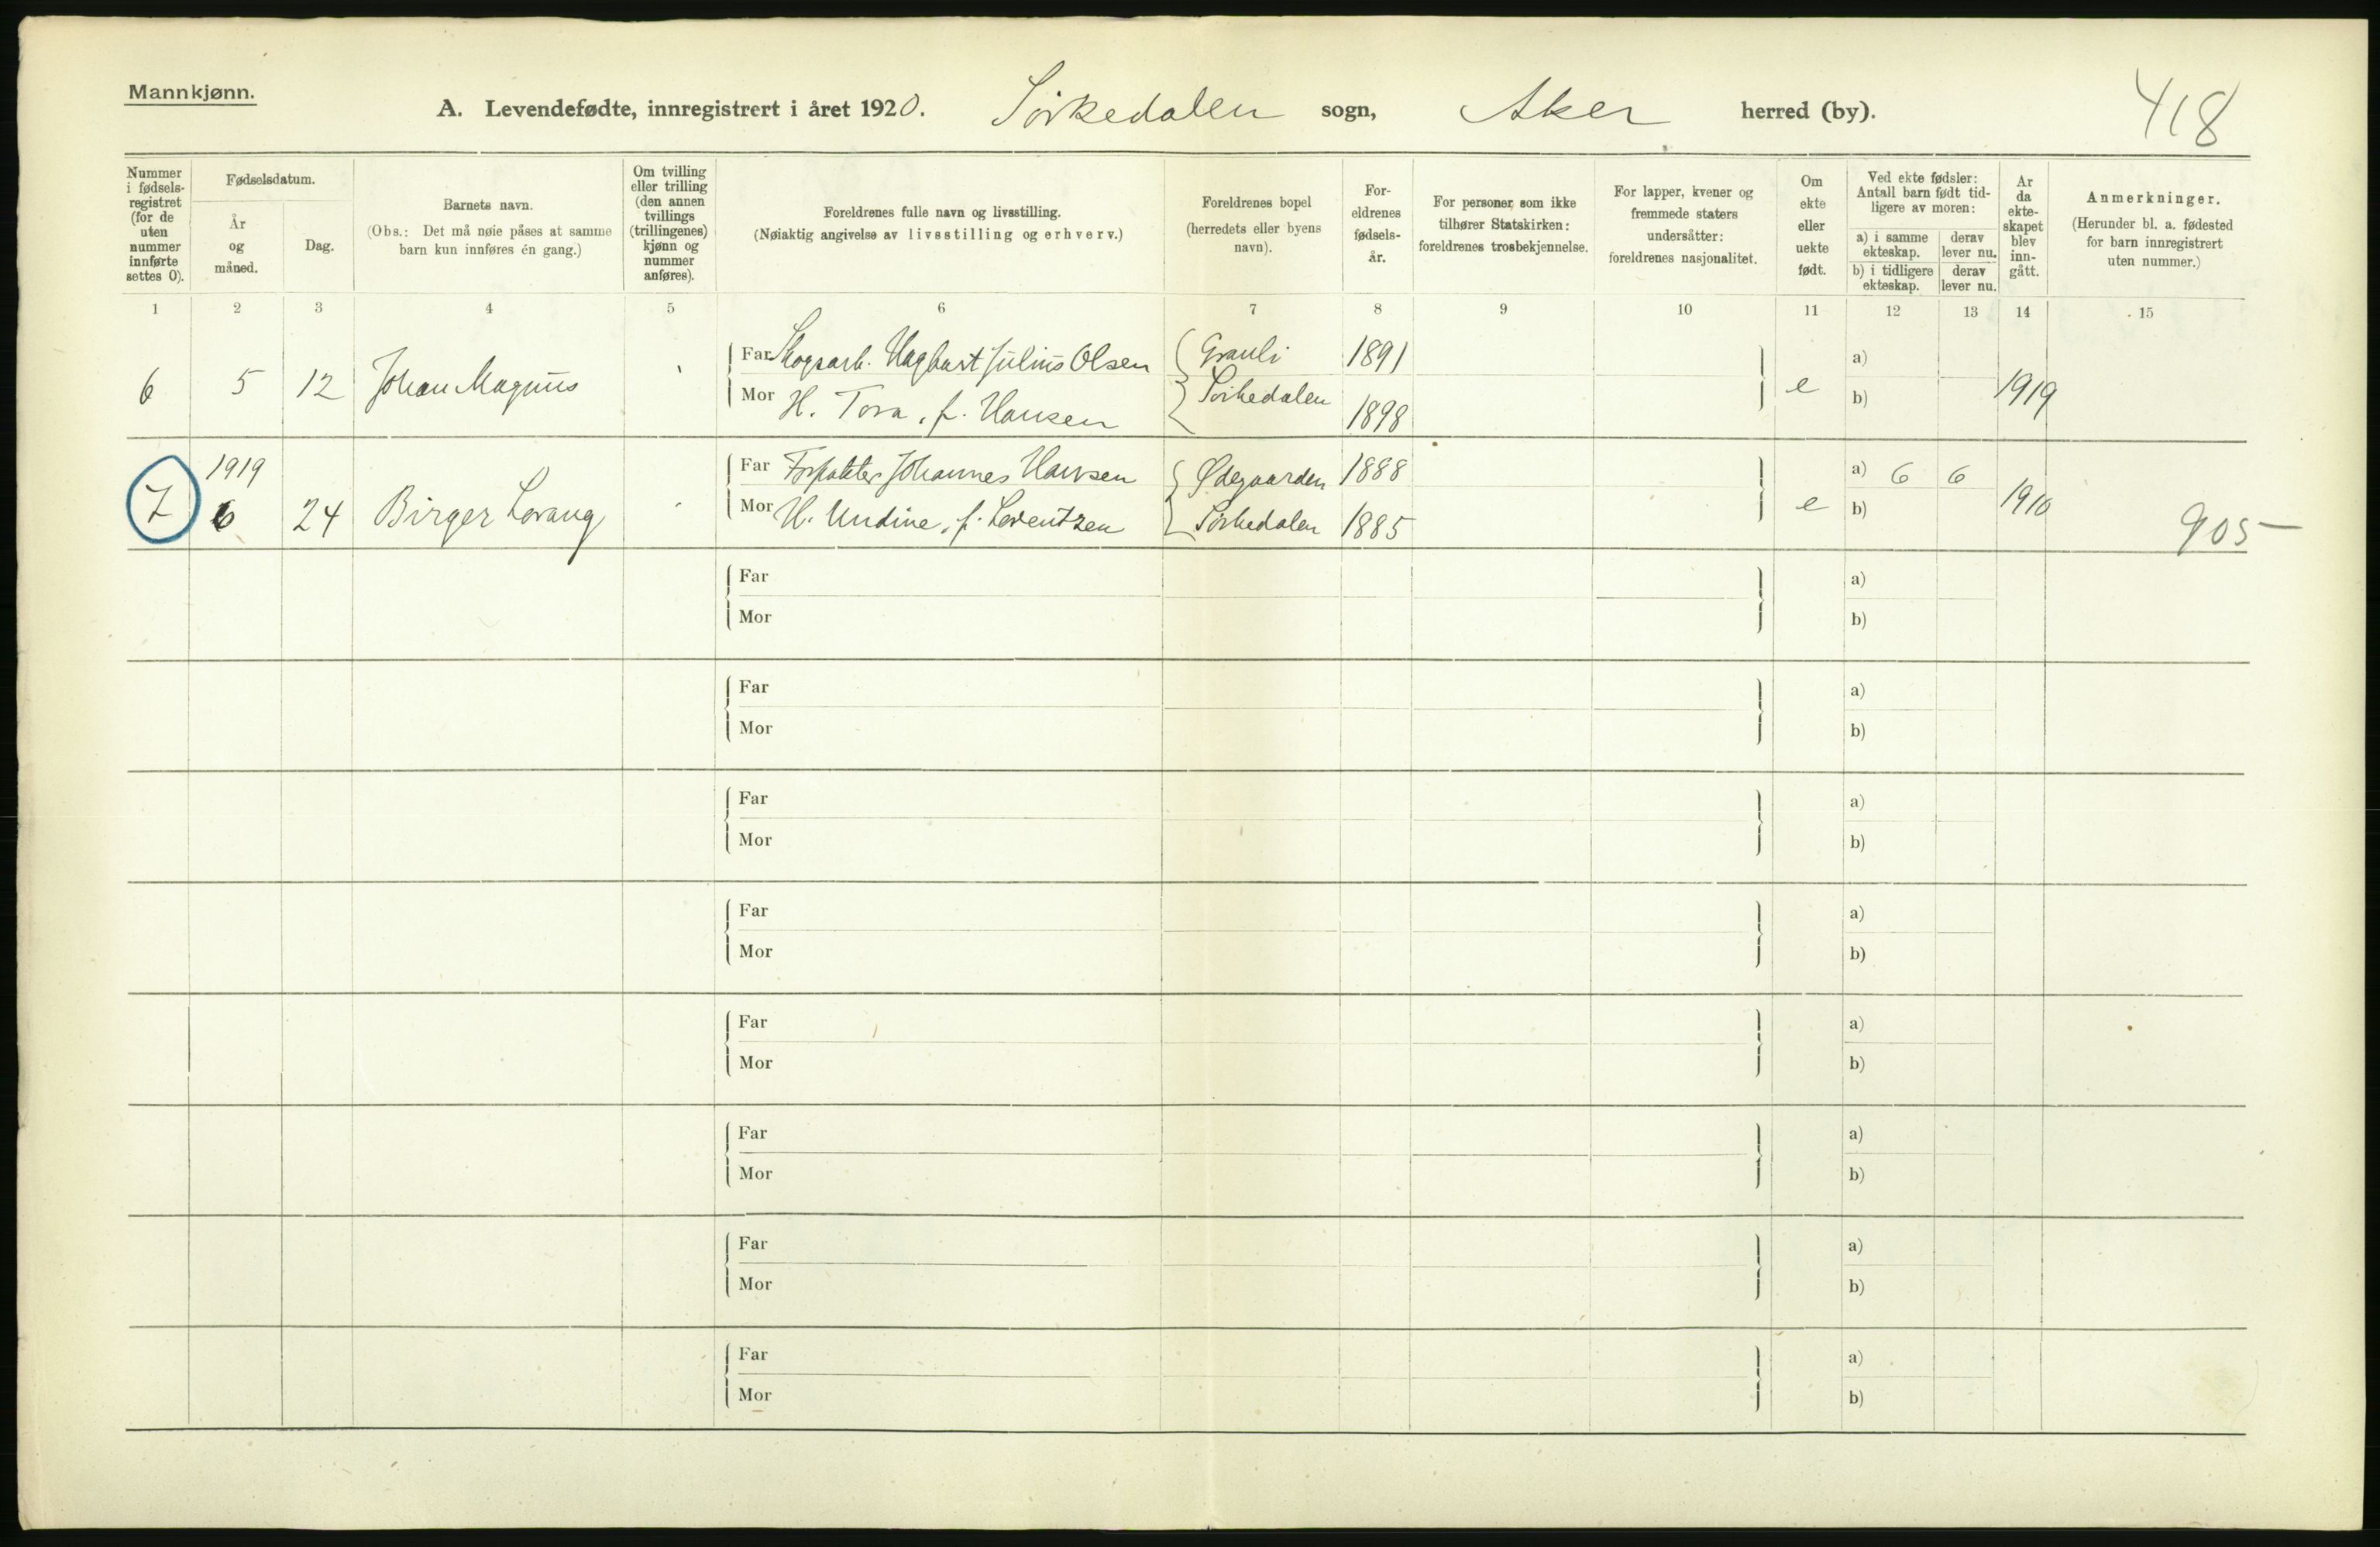 Mannkjønn.
A. Levendefødte, innregistrert i året 1920. Sörkedalen sogn, Aker herred (by).
418
Nummer i fødsels-registret (for de uten nummer innførte settes 0).
Fødselsdatum.
År og måned.
Dag.
Barnets navn.
(Obs.: Det må nøie påses at samme barn kun innføres én gang.)
Om tvilling eller trilling (den annen tvillings (trillingenes) kjønn og nummer anføres).
Foreldrenes fulle navn og livsstilling.
(Nøiaktig angivelse av livsstilling og erhverv.)
Foreldrenes bopel
(herredets eller byens navn).
For-eldrenes fødsels-år.
For personer, som ikke tilhører Statskirken: foreldrenes trosbekjennelse.
For lapper, kvener og fremmede staters undersåtter: foreldrenes nasjonalitet.
Om ekte eller uekte født.
Ved ekte fødsler: Antall barn født tid-ligere av moren:
a) i samme ekteskap.
derav lever nu.
b) i tidligere ekteskap.
derav lever nu.
Ar da ekte-skapet blev inn-gått.
Anmerkninger.
(Herunder bl. a. fødested for barn innregistrert uten nummer.)
1 2 3 4 5 6 7 8 9 10 11 12 13 14 15
Far Skogsarb. Hagbart Julius Olsen Grauli 1891 a)
6 5 12 Johan Magnus e 1919
Mor H. Tora, f. Hansen Sörkedalen 1898 b)
1919 Far Johannes Hansen Ødegaarden 1888 a) 6 6
7 6 24 Birger Lovang e 1910
Mor H. Undine, f. Lorentzen Sörkedalen 1885 b)
905
Far a)
Mor b)
Far a)
Mor b)
Far a)
Mor b)
Far a)
Mor b)
Far a)
Mor b)
Far a)
Mor b)
Far a)
Mor b)
Far a)
Mor b)